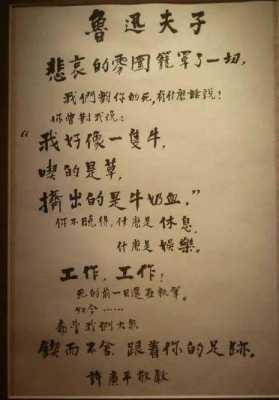 魯迅夫子
悲哀的雰圍籠罩了一切,
我們對你的死,有什麼話說!
你曾對我說:
“我好像一隻牛,
喫的是草,
擠出的是牛奶血。”
你不曉得,什麼是休息,
什麼是娛樂。
工作,工作!
死的前一日還在執筆。
如今……
希望我們大眾
鍥而不舍,跟着你的足跡。
許廣平敬獻